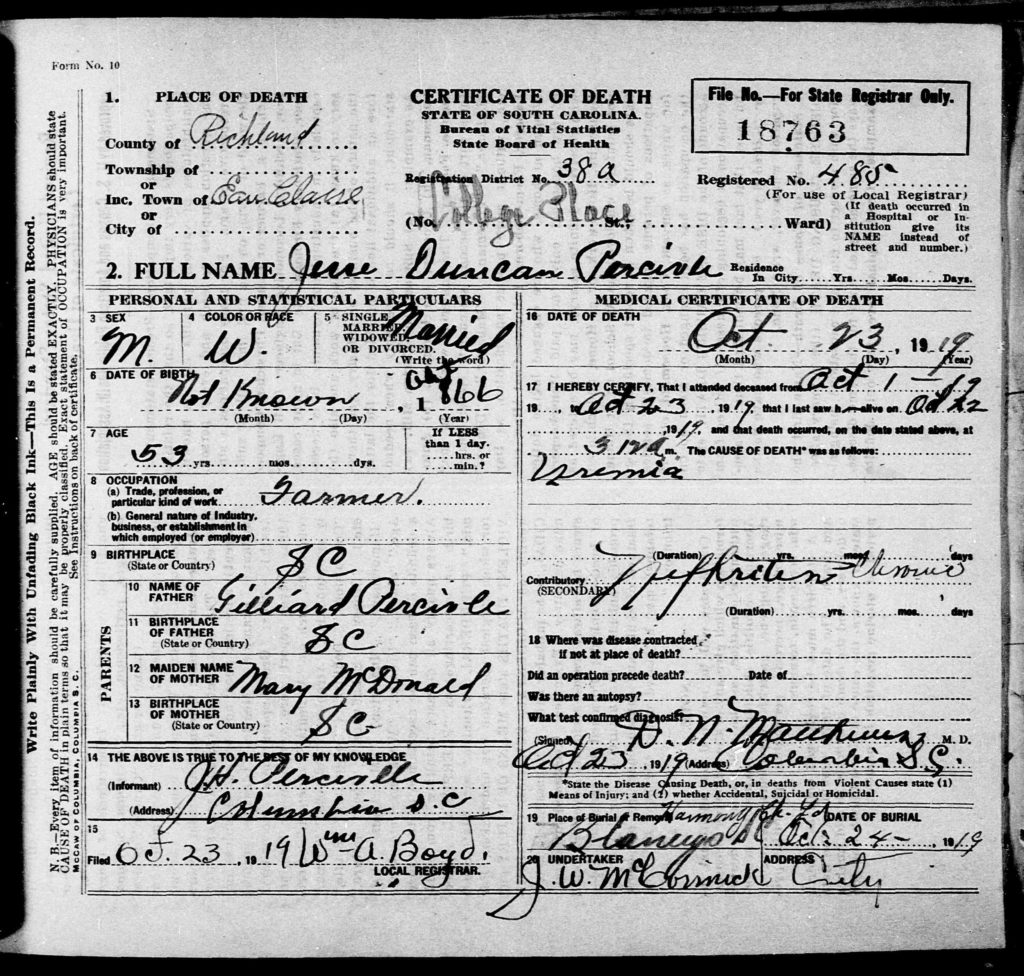 Form No. 10
1. PLACE OF DEATH
County of Richland
Township of
or
Inc. Town of Eau Claire
or
City of
CERTIFICATE OF DEATH
STATE OF SOUTH CAROLINA.
Bureau of Vital Statistics
State Board of Health
Registration District No. 38a
(No. College Place St.; Ward)
File No.—For State Registrar Only.
18763
Registered No. 485
(For use of Local Registrar)
(If death occurred in
a Hospital or In-
stitution give its
NAME instead of
street and number.)
2. FULL NAME Jesse Duncan Percivle
Residence
In City Yrs. Mos. Days.
PERSONAL AND STATISTICAL PARTICULARS
3 SEX
M.
4 COLOR OR RACE
W.
5 SINGLE
MARRIED,
WIDOWED,
OR DIVORCED.
(Write the word)
Married
6 DATE OF BIRTH
Not Known, 1866
(Month) (Day), (Year)
7 AGE
53 yrs. mos. dys.
If LESS
than 1 day.
hrs. or
min.?
8 OCCUPATION
(a) Trade, profession, or
particular kind of work Farmer.
(b) General nature of Industry,
business, or establishment in
which employed (or employer)
9 BIRTHPLACE
(State or Country) S C
PARENTS
10 NAME OF
FATHER Gilliard Percivle
11 BIRTHPLACE
OF FATHER
(State or Country) S C
12 MAIDEN NAME
OF MOTHER Mary McDonald
13 BIRTHPLACE
OF MOTHER
(State or Country) S C
14 THE ABOVE IS TRUE TO THE BEST OF MY KNOWLEDGE
(Informant) J.H. Percivlle
(Address) Columbia S.C
15
Filed Oct. 23, 1919 Wm A. Boyd.
LOCAL REGISTRAR.
MEDICAL CERTIFICATE OF DEATH
16 DATE OF DEATH
Oct 23, 1919
(Month) (Day), (Year)
17 I HEREBY CERTIFY, That I attended deceased from Oct 1-19
19 to Oct 23 1919, that I last saw h alive on Oct 22
, 1919, and that death occurred, on the date stated above, at
m. The CAUSE OF DEATH* was as follows:
Uremia
(Duration) yrs. mos. days
Contributory
(SECONDARY) Chronic
(Duration) yrs. mos. days
18 Where was disease contracted,
if not at place of death?
Did an operation precede death? Date of
Was there an autopsy?
What test confirmed diagnosis?
(Signed) D. N. M. D.
Oct 23, 1919 (Address) Columbia S.C.
*State the Disease Causing Death, or, in deaths from Violent Causes state (1)
Means of Injury; and (2) whether Accidental, Suicidal or Homicidal.
19 Place of Burial or Removal DATE OF BURIAL
Harmony
Oct. 24- 1919
20 UNDERTAKER ADDRESS
J. W. McCormick City
Write Plainly With Unfading Black Ink—This Is a Permanent Record.
N. B.—Every item of information should be carefully supplied. AGE should be stated EXACTLY. PHYSICIANS should state
CAUSE OF DEATH in plain terms so that it may be properly classified. Exact statement of OCCUPATION is very important.
See Instructions on back of certificate.
McCAW OF COLUMBIA, COLUMBIA S. C.